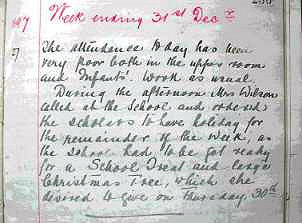 Week ending 31st Decr
The attendance today has been
very poor both in the upper room
and Infants'. Work as usual.
During the afternoon Mrs Wilson
called at the School and ordered
the scholars to have holiday for
the remainder of the week, as
the school had to be got ready
for a School Treat and large
Christmas Tree, which she
desired to give on Thursday 30th